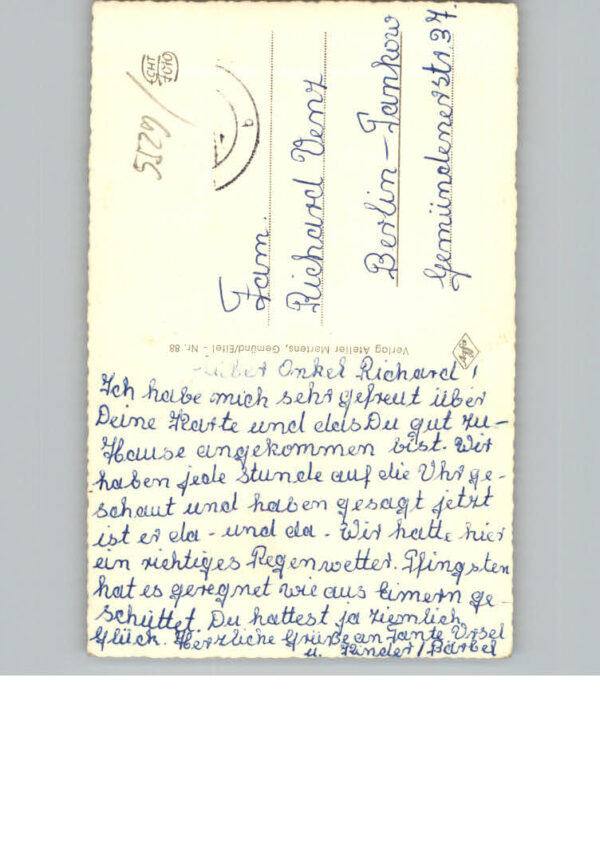 Fam.
Richard Venz
Berlin-Pankow
Gemündenerstr. 37.
ECHT
FOTO
Verlag Atelier Mertens, Gemünd/Eifel - Nr. 88
Onkel Richard!
Ich habe mich sehr gefreut über
Deine Karte und das Du gut zu-
Hause angekommen bist. Wir
haben jede stunde auf die Uhr ge-
schaut und haben gesagt jetzt
ist er da - und da. Wir hatte hier
ein richtiges Regenwetter. Pfingsten
hat es geregnet wie aus Eimern ge-
schüttet. Du hattest ja ziemlich
Glück. Herzliche Grüße an Tante Ursel
u. Kinder / Bärbel